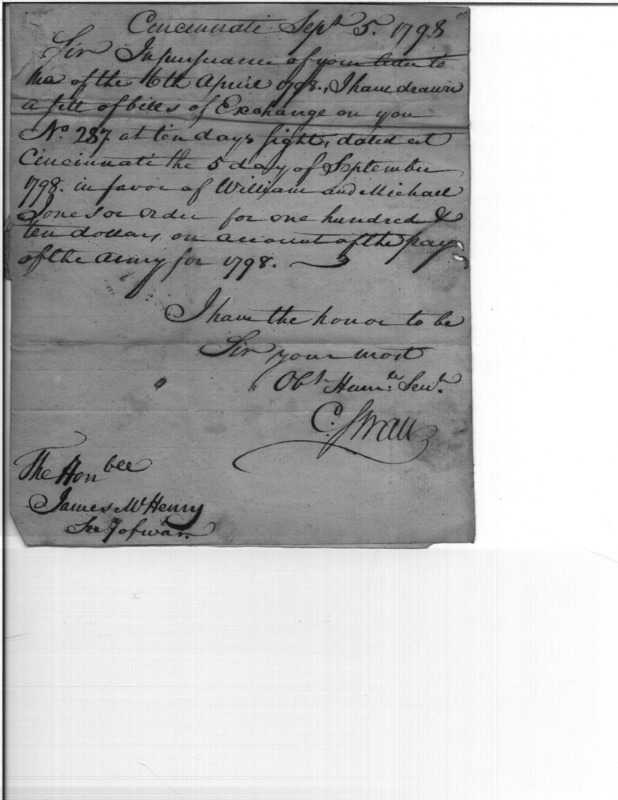 Cincinnati Sept 5. 1798
Sir In pursuance of your letter to
me of the 16th April 1798, I have drawn
a sett of bills of Exchange on you
No. 287 at ten days sight, dated at
Cincinnati the 5 day of September
1798. in favor of William and Michael
Jones or order for one hundred &
ten dollars, on account of the pay
of the army for 1798.
I have the honor to be
Sir your most
Obt. Humle. Servt.
C. Swan
The Honbee
James McHenry
Secy of war.